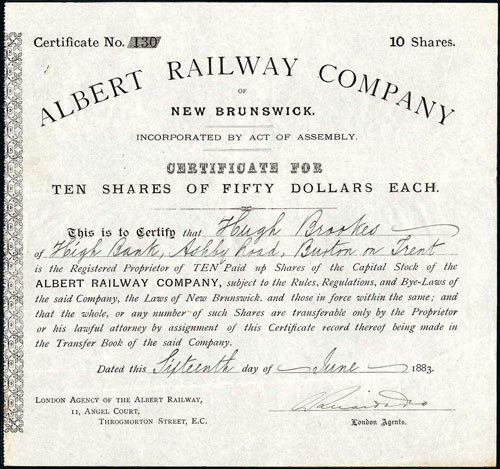 Certificate No. 130 10 Shares.
ALBERT RAILWAY COMPANY
OF
NEW BRUNSWICK.
INCORPORATED BY ACT OF ASSEMBLY.
CERTIFICATE FOR
TEN SHARES OF FIFTY DOLLARS EACH.
This is to Certify that Hugh Brookes
of High Bank, Ashby Road, Burton on Trent
is the Registered Proprietor of TEN Paid up Shares of the Capital Stock of the
ALBERT RAILWAY COMPANY, subject to the Rules, Regulations, and Bye-Laws of
the said Company, the Laws of New Brunswick, and those in force within the same; and
that the whole, or any number of such Shares are transferable only by the Proprietor
or his lawful attorney by assignment of this Certificate record thereof being made in
the Transfer Book of the said Company.
Dated this Sixteenth day of June 1883.
LONDON AGENCY OF THE ALBERT RAILWAY,
11, ANGEL COURT,
THROGMORTON STREET, E.C.
London Agents.